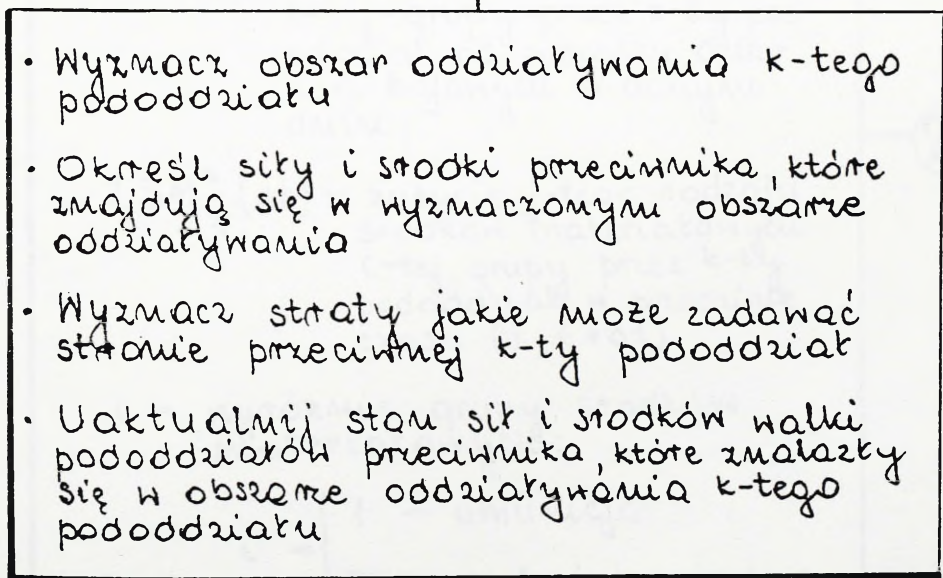 • Wyznacz obszar oddziaływania k-tego
pododdziału
• Określ siły i środki przeciwnika, które
znajdują się w wyznaczonym obszarze
oddziaływania
• Wyznacz straty jakie może zadawać
stronie przeciwnej k-ty pododdział
• Uaktualnij stan sił i środków walki
pododdziałów przeciwnika, które znalazły
się w obszarze oddziaływania k-tego
pododdziału